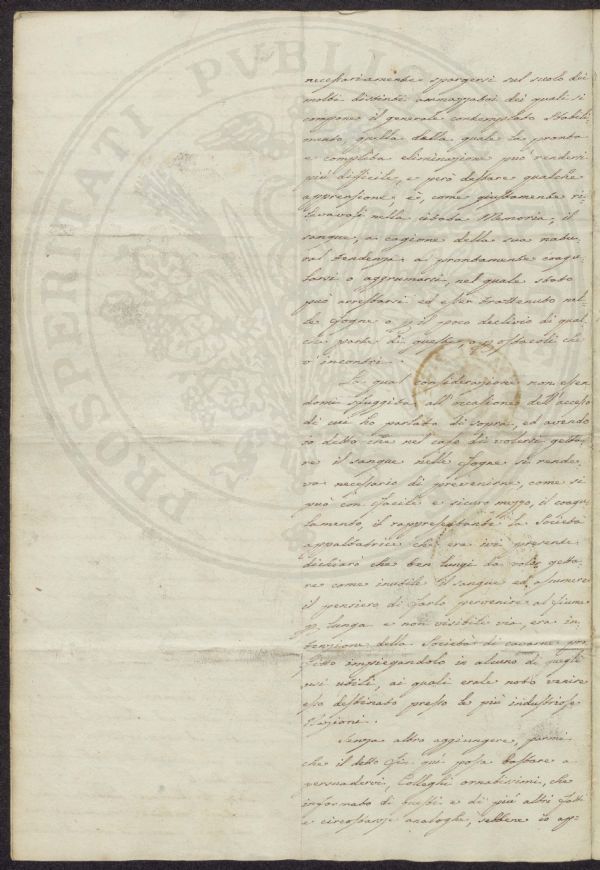 necessariamente spargersi sul suolo dei
molti distinti ammazzatoi dei quali si
compone il generale contemplato Stabili-
mento, quella dalla quale la pronta
e completa eliminazione può rendersi
più difficile, e però destare qualche
apprensione, è, come giustamente ri-
levavasi nella citata Memoria, il
sangue, a cagione della sua natu-
ral tendenza a prontamente coagu-
larsi o aggrumarsi, nel quale stato
può arrestarsi ed esser trattenuto nel-
le fogne o p il poco declivio di qual
che parte di queste, o p ostacoli che
v'incontri.
La qual considerazione non essen
domi sfuggita all'occasione dell'accesso
di cui ho parlato di sopra, ed avendo
io detto che nel caso di volersi getta-
re il sangue nelle fogne si rende-
va necessario di prevenirne, come si
può con facile e sicuro mezzo, il coagu-
lamento, il rappresentante la Società
appaltatrice che era ivi presente
dichiarò che ben lungi da voler getta-
re come inutile il sangue ed assumere
il pensiero di farlo pervenire al fiume
p lunga e non visibile via, era in-
tenzione della Società di cavarne pro
fitto impiegandolo in alcuno di quegli
usi utili, ai quali erale noto venire
esso destinato presso le più industriose
Nazioni.
Senza altro aggiungere, parmi
che il detto fin qui possa bastare a
persuadervi, Colleghi ornatissimi, che
informato di questi e di più altri fatti
e circostanze analoghe, sebbene io ap-
PROSPERITATI PUBLIC